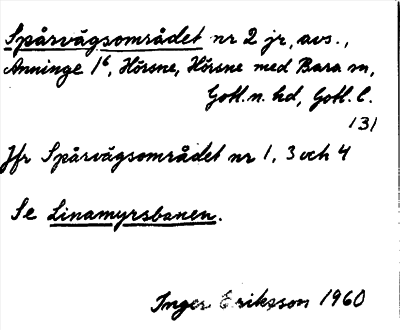 Spårvägsområdet nr 2 jr, avs.,
Anninge 1⁶, Hörsne, Hörsne med Bara sn,
Gotl. n. hd, Gotl. l.
131
Jfr Spårvägsområdet nr 1, 3 och 4
Se Linamyrsbanen.
Inger Eriksson 1960